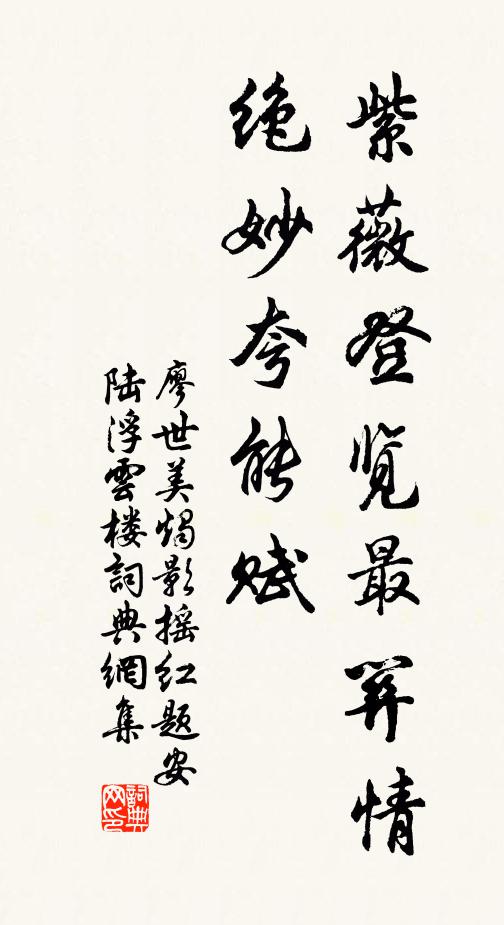 紫薇登览最关情
绝妙夸能赋
廖世美烛影摇红题安
陆浮雲楼詞典網集
詞典网印